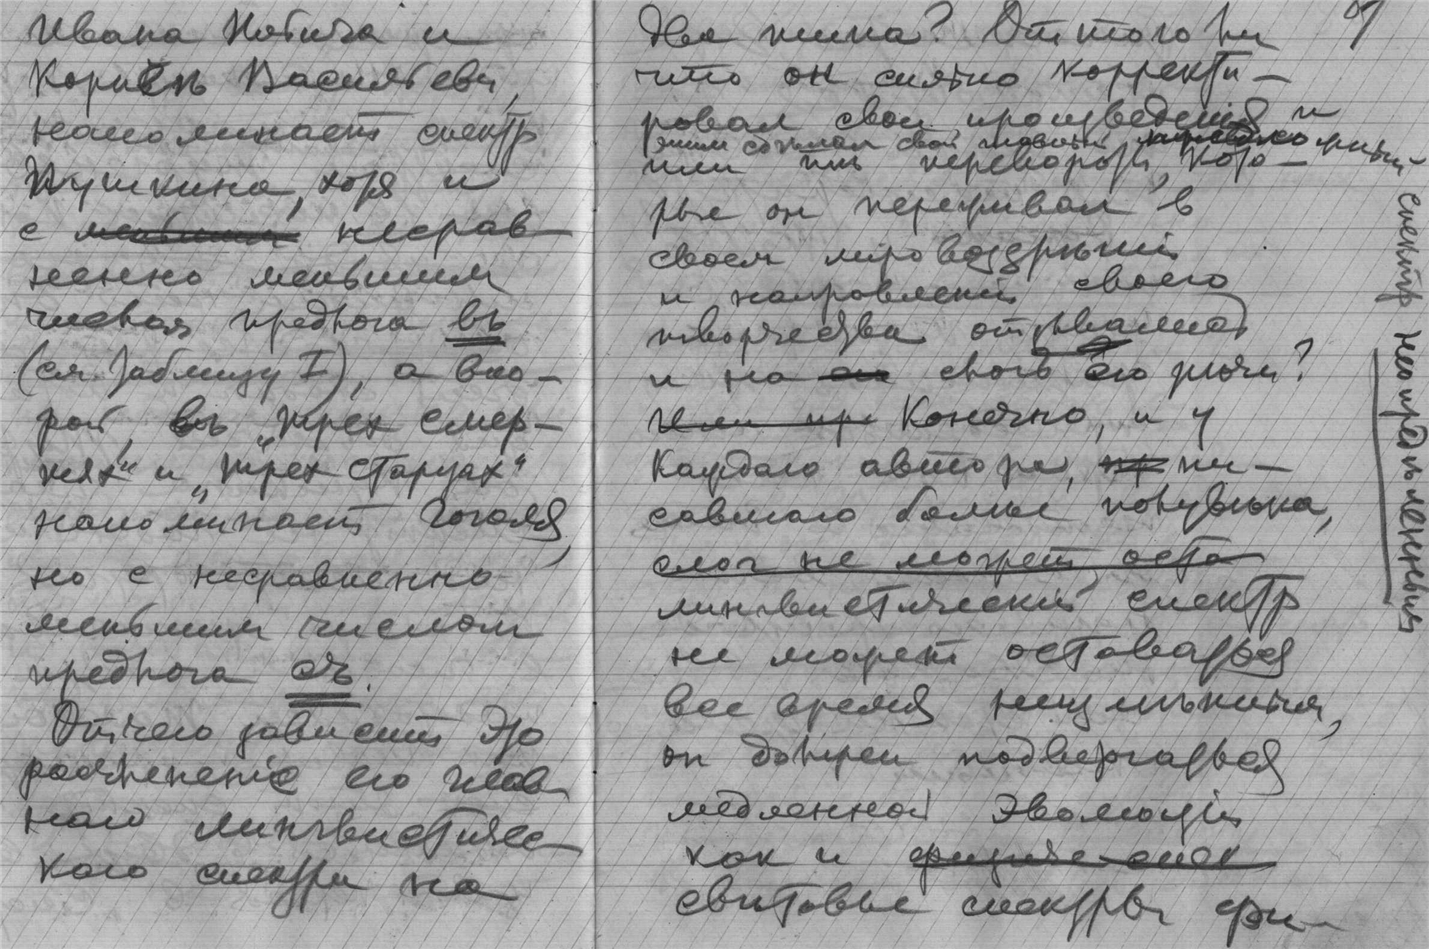 Ивана Ильича и
Корнѣѣ Васильевѣ,
напоминает спектр
Пушкина, хотя и
с меньшим несрав
ненно меньшим
числом предлога въ
(см. таблицу I), а вто-
рой, въ „Трех смер-
тях“ и „Трех старцах“
напоминает Гоголя,
но с несравненно
меньшим числом
предлога съ.
Отчего зависит это
расчленение его глав
наго лингвистичес
каго спектра на
два типа? Оттого ли
что он сильно корректи-
ровал свои произведения и
этим сближал свой
или те перевороты, кото-
рые он переживал в
своем мировоззрѣнии
и направлении своего
творчества отзывались
и на складѣ его рѣчи?
Или пр Конечно, и у
каждаго автора, пи-
савшаго болѣе полувѣка,
слог не может оста
лингвистический спектр
не может оставаться
все время неизмѣнным,
он должен подвергаться
медленной эволюции
как и физиче спек
свѣтовые спектры фи-
спектр неопредѣленным